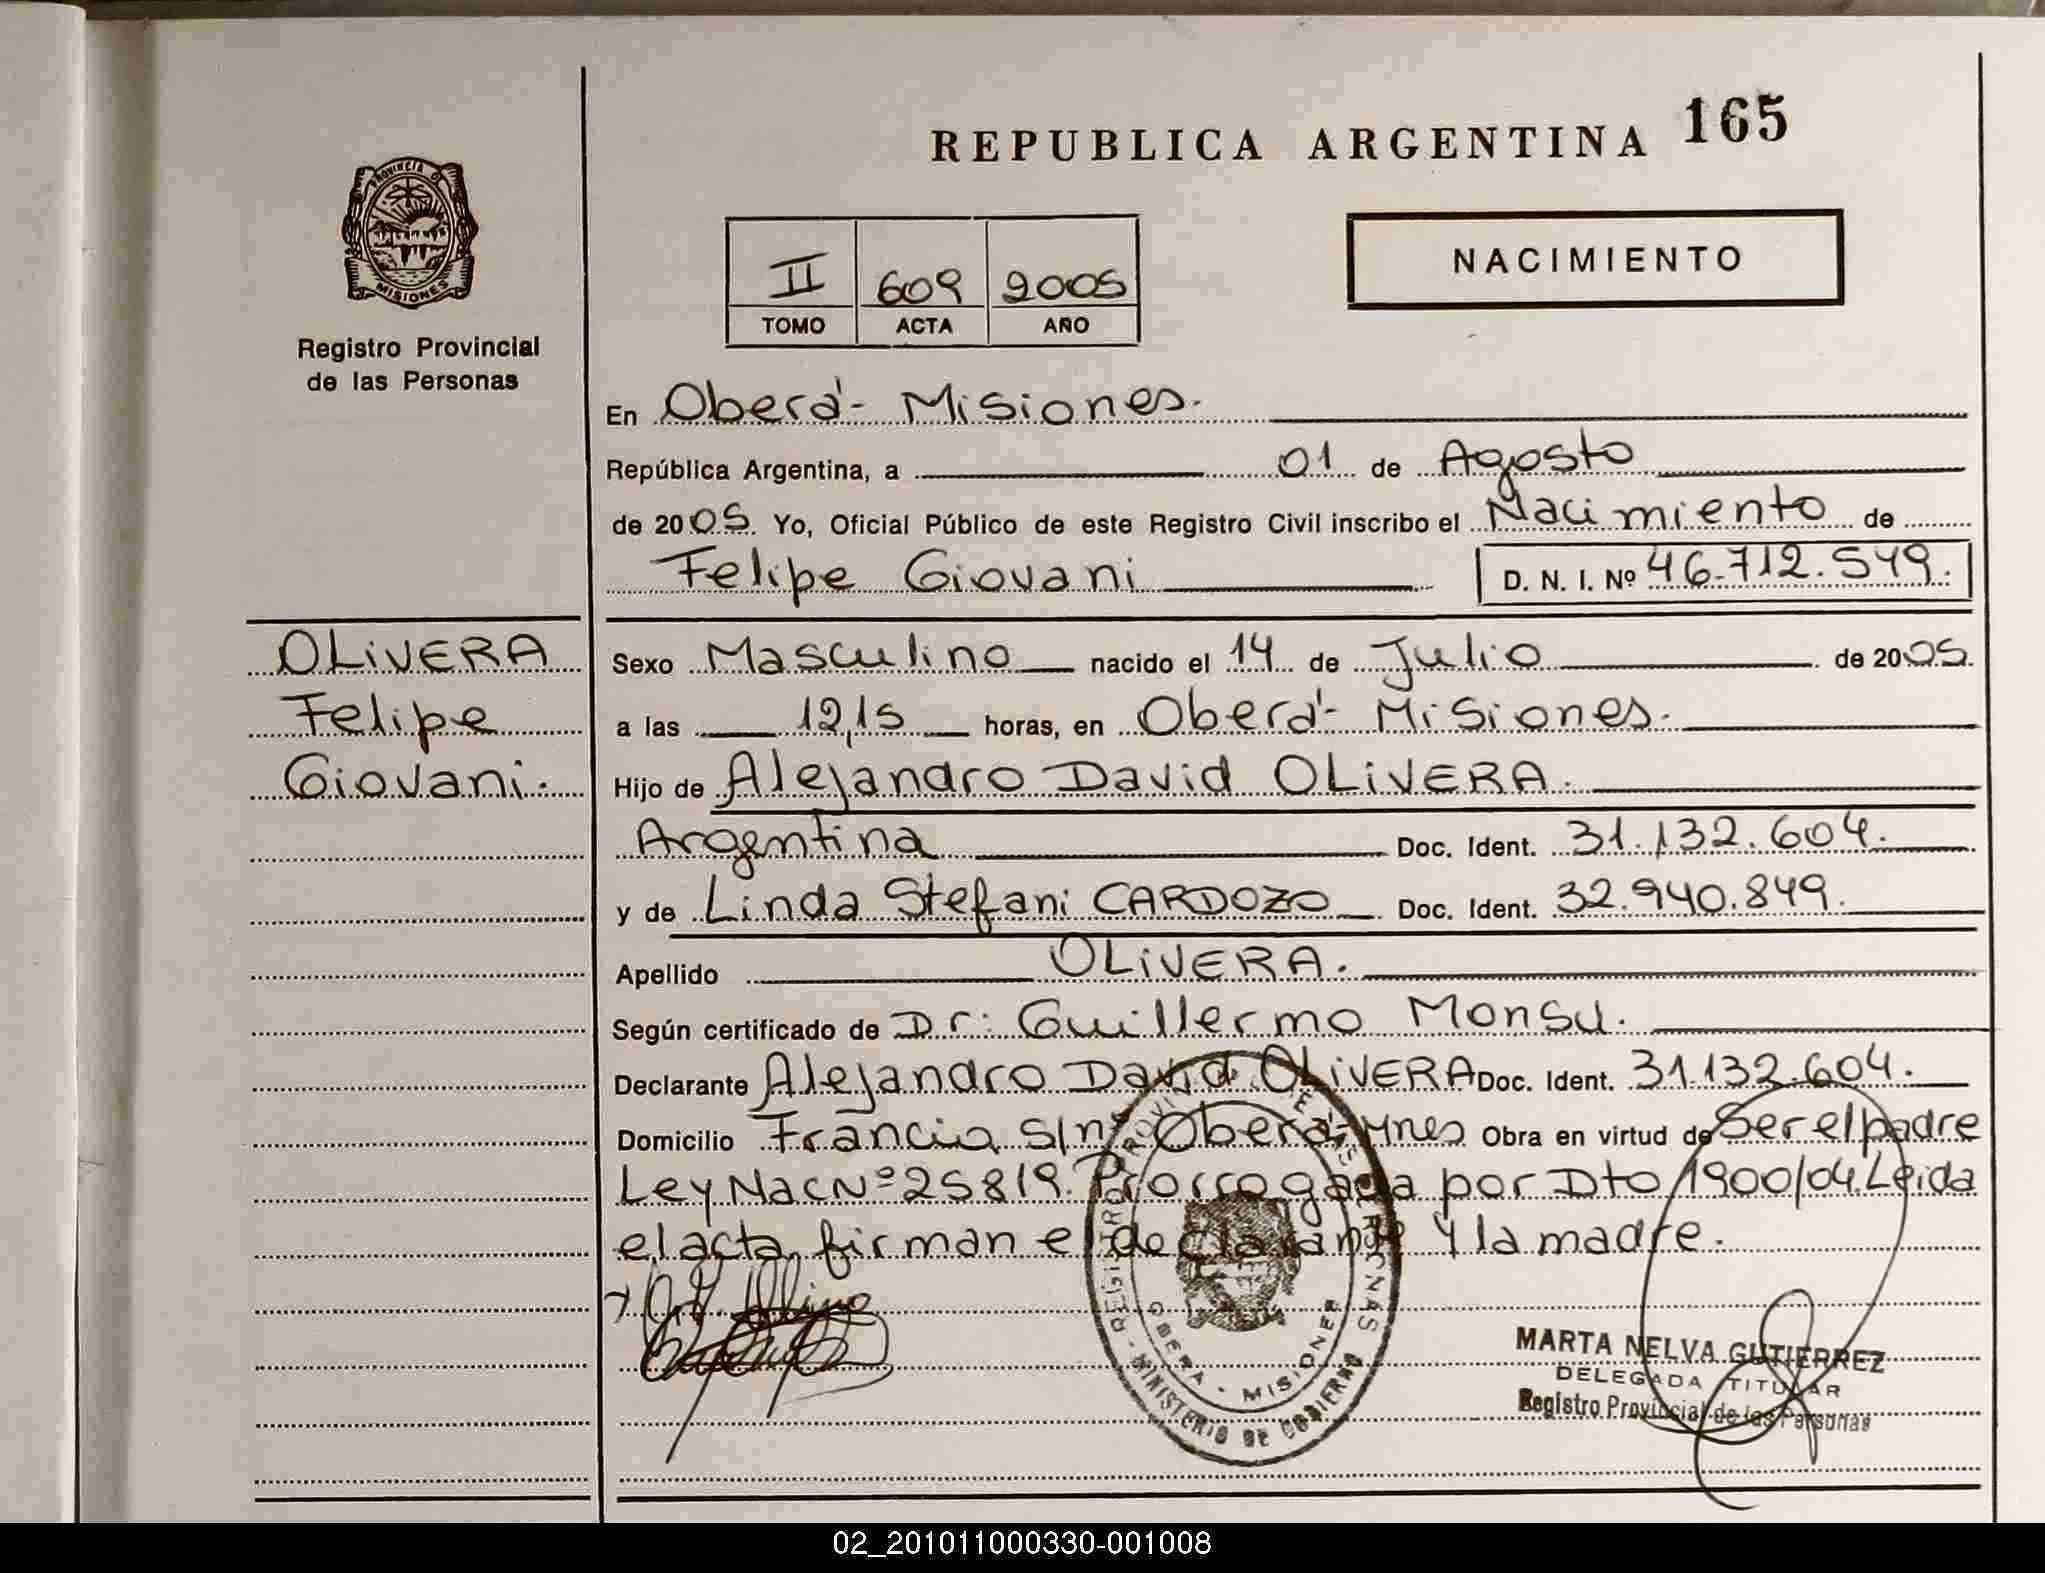 REPUBLICA ARGENTINA 165
PROVINCIA DE
MISIONES
Registro Provincial
de las Personas
NACIMIENTO
II 609 2005
TOMO ACTA AÑO
En Oberá - Misiones.
República Argentina, a 01 de Agosto
de 2005. Yo, Oficial Público de este Registro Civil inscribo el Nacimiento de
Felipe Giovani D. N. I. Nº 46.712.549.
OLiVERA
Felipe
Giovani.
Sexo Masculino nacido el 14 de Julio de 2005.
a las 12,15 horas, en Oberá - Misiones.
Hijo de Alejandro David OLiVERA.
Argentina Doc. Ident. 31.132.604.
y de Linda Stefani CARDOZO Doc. Ident. 32.940.849.
Apellido OLiVERA.
Según certificado de Dr: Guillermo Monsu.
Declarante Alejandro David OLiVERA Doc. Ident. 31.132.604.
Domicilio Francia s/nº Oberá, Mnes Obra en virtud de Ser el padre
Ley Nac Nº 25819. Prorrogada por Dto 1900/04. Leida
el acta, firman el declarante y la madre.
OBERA - MISIONES
MINISTERIO DE GOBIERNO
MARTA NELVA GUTIERREZ
DELEGADA TITULAR
Registro Provincial de las Personas
02_201011000330-001008